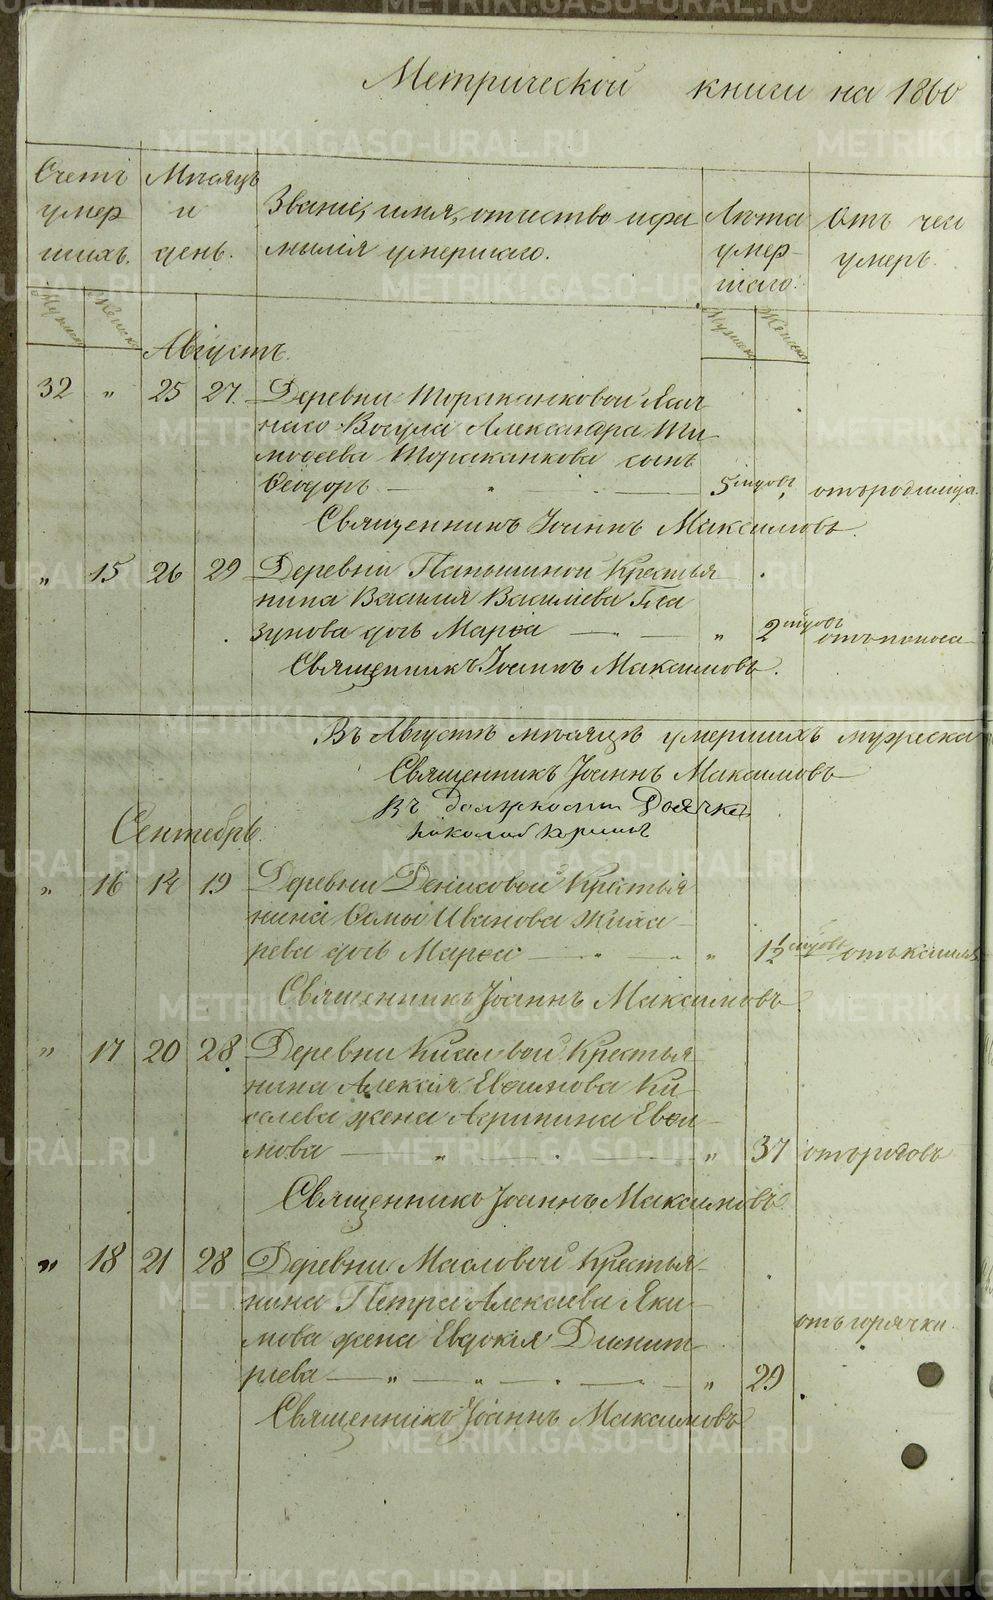 Метрической книги на 1860
Счетъ умерших.
Мѣсяцъ и день.
Званіе, имя, отчество и фамилія умершаго.
Лѣта умершаго.
Отъ чего умеръ.
Мужеска
Женска
Мужеска
Женска
Августъ.
32 " 25 27. Деревни Тараканковой Ясач
наго Вогула Александра Ти
моѳеева Тараканкова сынъ
Ѳеодоръ — " — 5 годовъ отъ родимца.
Священникъ Іоаннъ Максимовъ.
" 15 26 29 Деревни Паньшиной Крестья
нина Василія Василіева Гла
зунова дочь Марѳа — " — " 2 годовъ отъ поноса
Священникъ Іоаннъ Максимовъ.
Въ Августѣ мѣсяцѣ умершихъ мужеска
Священникъ Іоаннъ Максимовъ
Въ должности Дьячка
Николай
Сентебрь.
" 16 14 19 Деревни Денисовой Крестья
нина Иванова
рева дочь Марѳа — " — " 1½ годовъ отъ кашля
Священникъ Іоаннъ Максимовъ
" 17 20 28 Деревни Киселевой Крестья
нина Алексія Евѳимова Ки
селева жена Агрипина Евѳи
мова — " — " 37 отъ родовъ
Священникъ Іоаннъ Максимовъ.
" 18 21 28 Деревни Масловой Крестья-
нина Петра Алексіева Яки-
мова жена Евдокія Димит
ріева — " — " — " 29 отъ горячки.
Священникъ Іоаннъ Максимовъ
METRIKI.GASO-URAL.RU